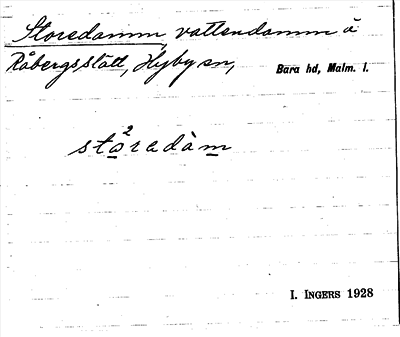 Storedamm, vattendamm å
Råbergsslätt, Hyby sn, Bara hd, Malm. l.
sto²redàm
I. INGERS 1928